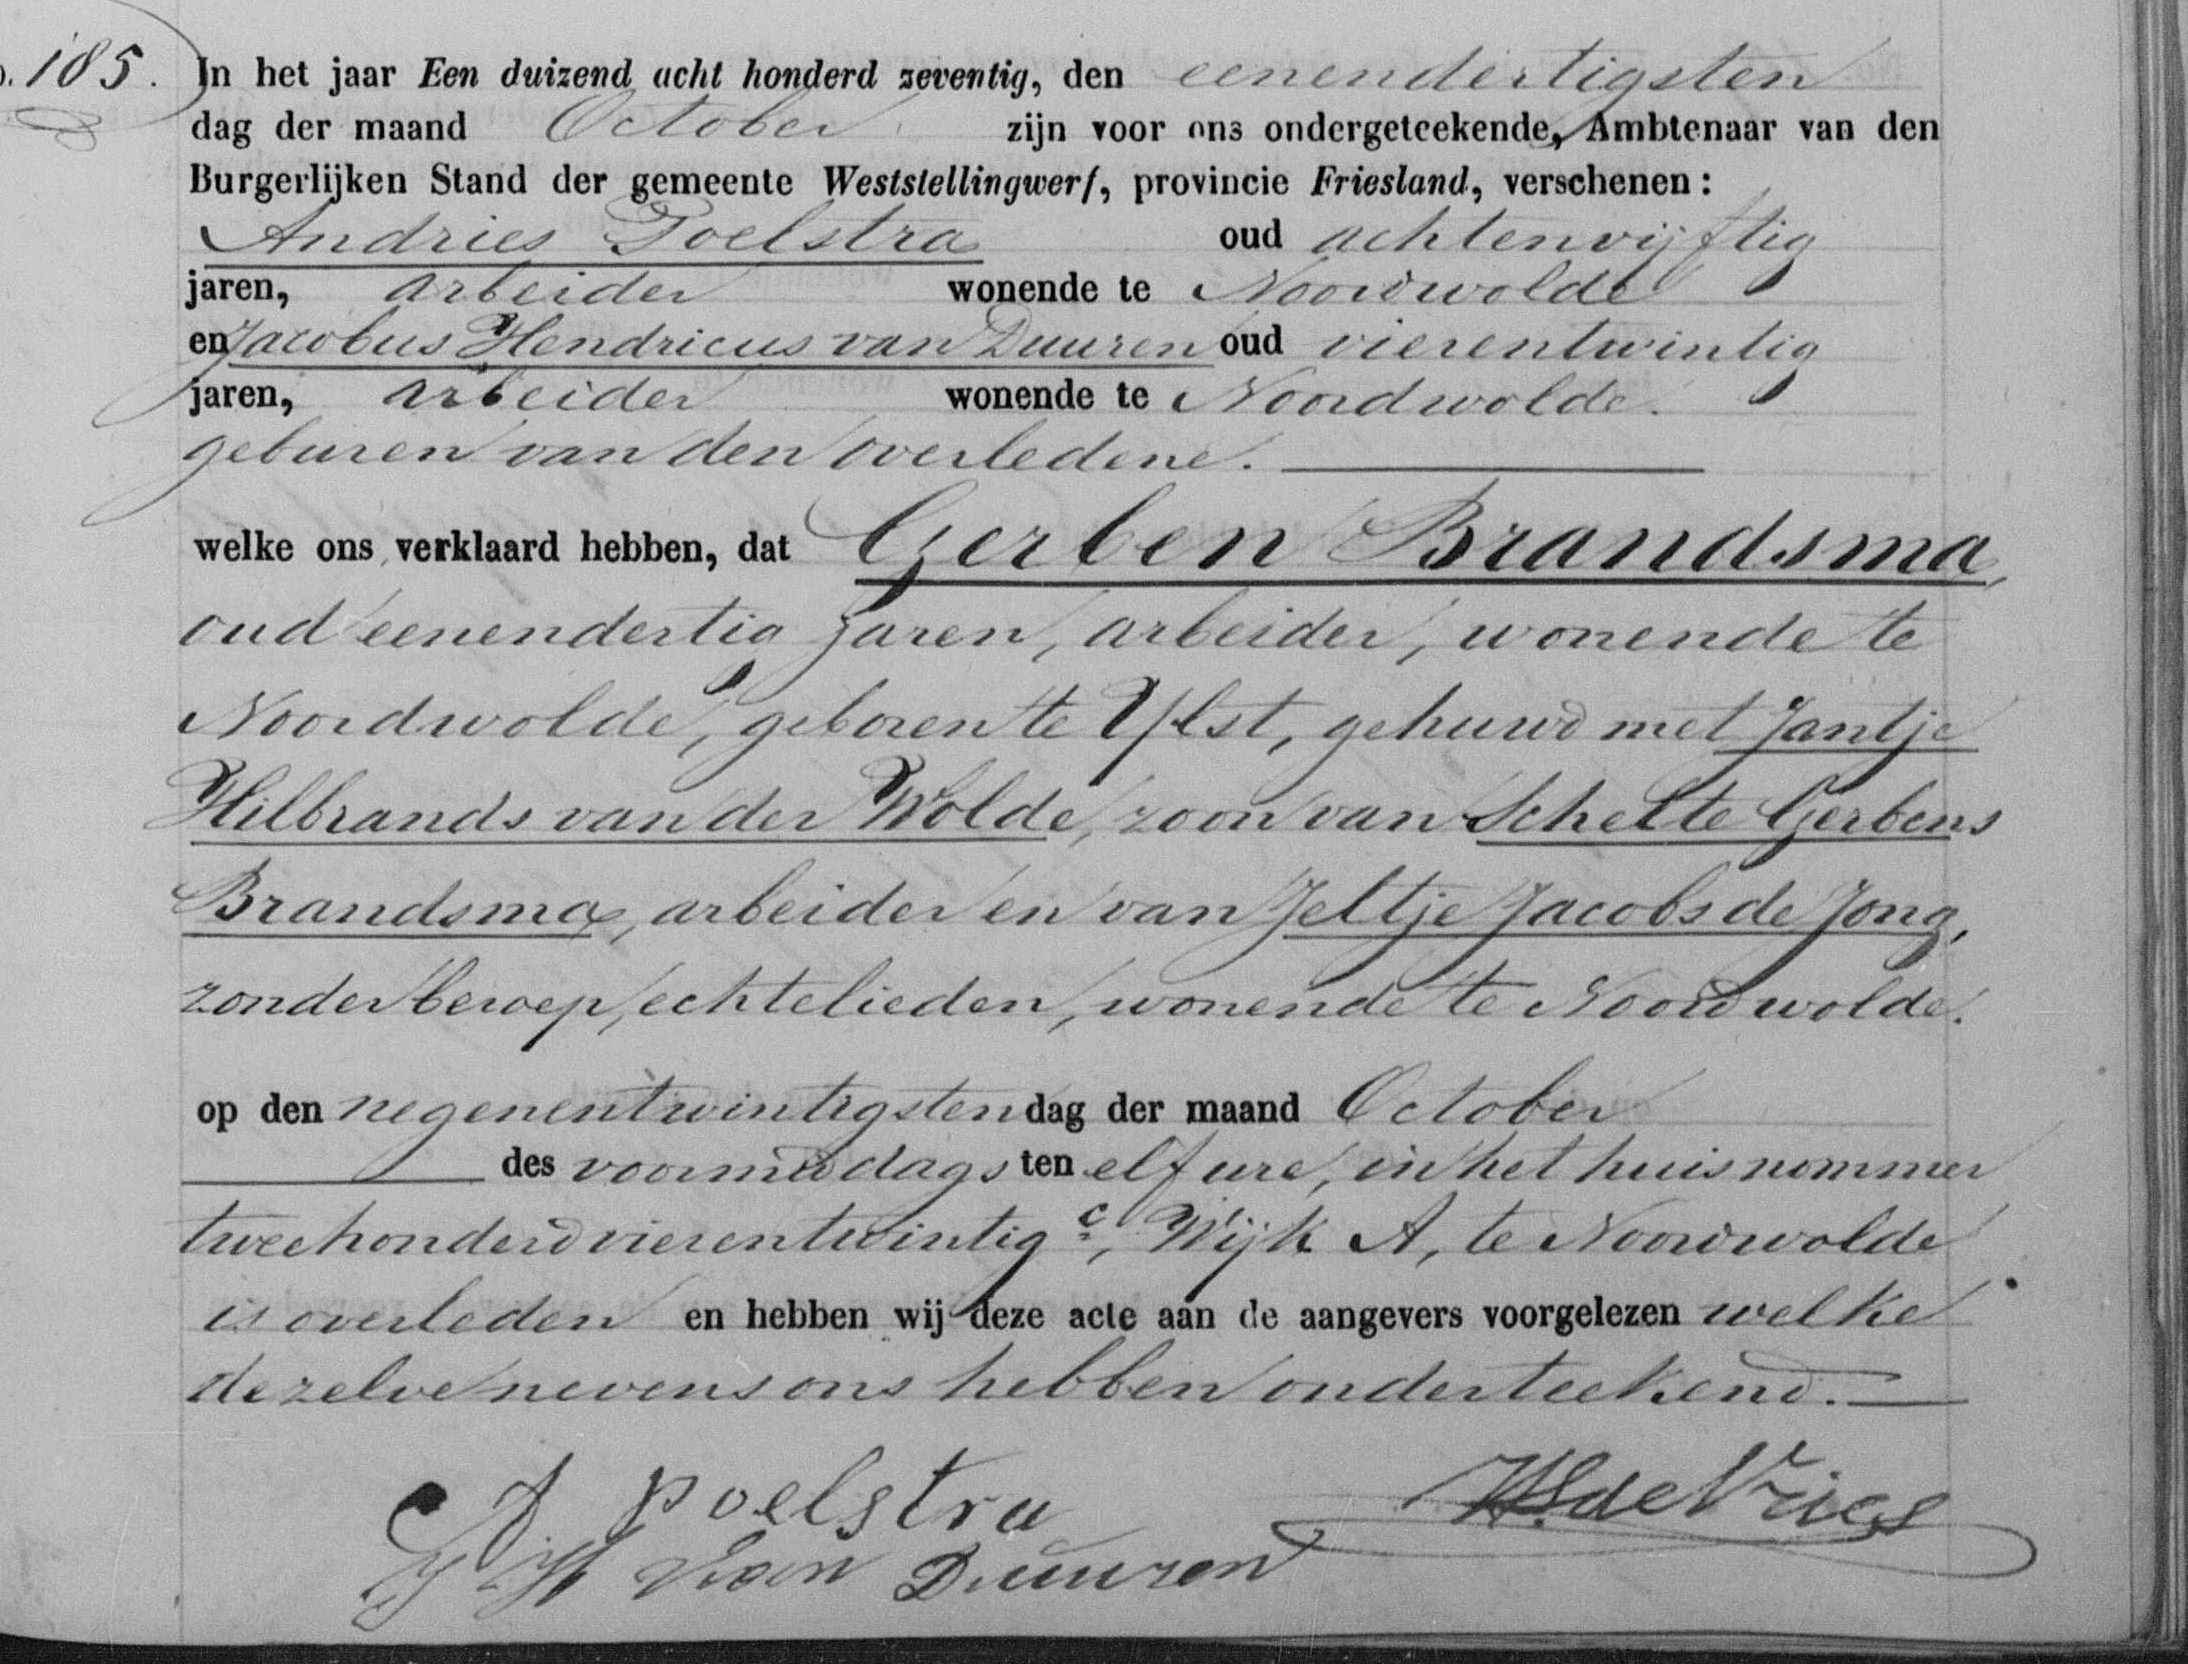 185. In het jaar Een duizend acht honderd zeventig, den eenendertigsten
dag der maand October zijn voor ons ondergeteekende, Ambtenaar van den
Burgerlijken Stand der gemeente Weststellingwerf, provincie Friesland, verschenen:
Andries Poelstra oud achtenvijftig
jaren, arbeider wonende te Noordwolde
en Jacobus Hendricus van Duuren oud vierentwintig
jaren, arbeider wonende te Noordwolde.
geburen van den overledene.
welke ons verklaard hebben, dat Gerben Brandsma,
oud eenendertig jaren, arbeider, wonende te
Noordwolde, geboren te IJlst, gehuwd met Jantje
Hilbrands van der Wolde, zoon van Schelte Gerbens
Brandsma, arbeider en van Jeltje Jacobs de Jong,
zonder beroep, echtelieden, wonende te Noordwolde.
op den negenentwintigsten dag der maand October
des voormiddags ten elf ure, in het huis nommer
tweehonderd vierentwintig c, Wijk A, te Noordwolde
is overleden en hebben wij deze acte aan de aangevers voorgelezen welke
dezelve nevens ons hebben onderteekend.
A Poelstra
HS de Vries
J H van Duuren